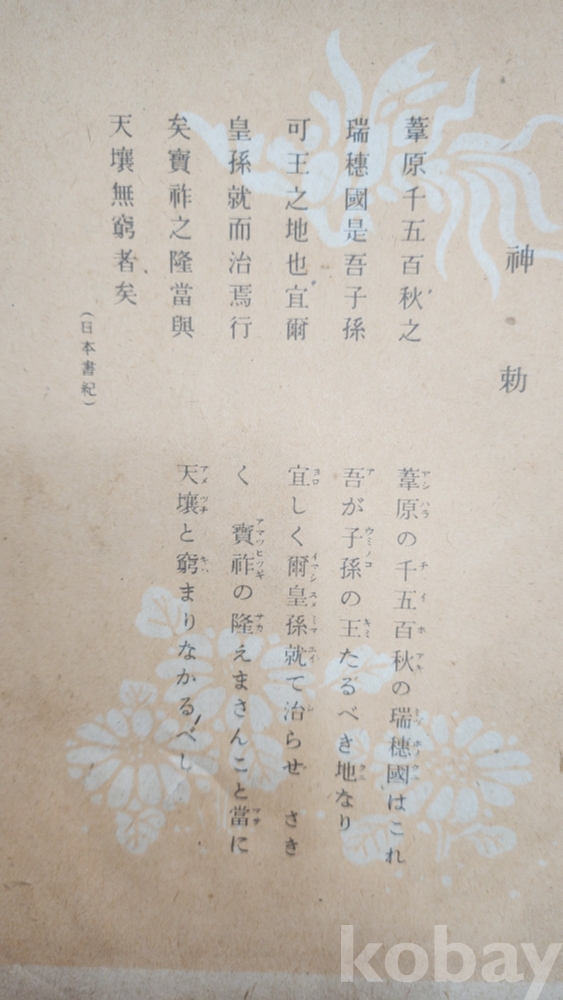 神勅
葦原千五百秋之
瑞穗國是吾子孫
可王之地也宜爾
皇孫就而治焉行
矣寶祚之隆當與
天壤無窮者矣
(日本書紀)
葦原の千五百秋の瑞穗國はこれ
吾が子孫の王たるべき地なり
宜しく爾皇孫就て治らせ さき
く 寶祚の隆えまさんこと當に
天壤と窮まりなかるべし
kobay